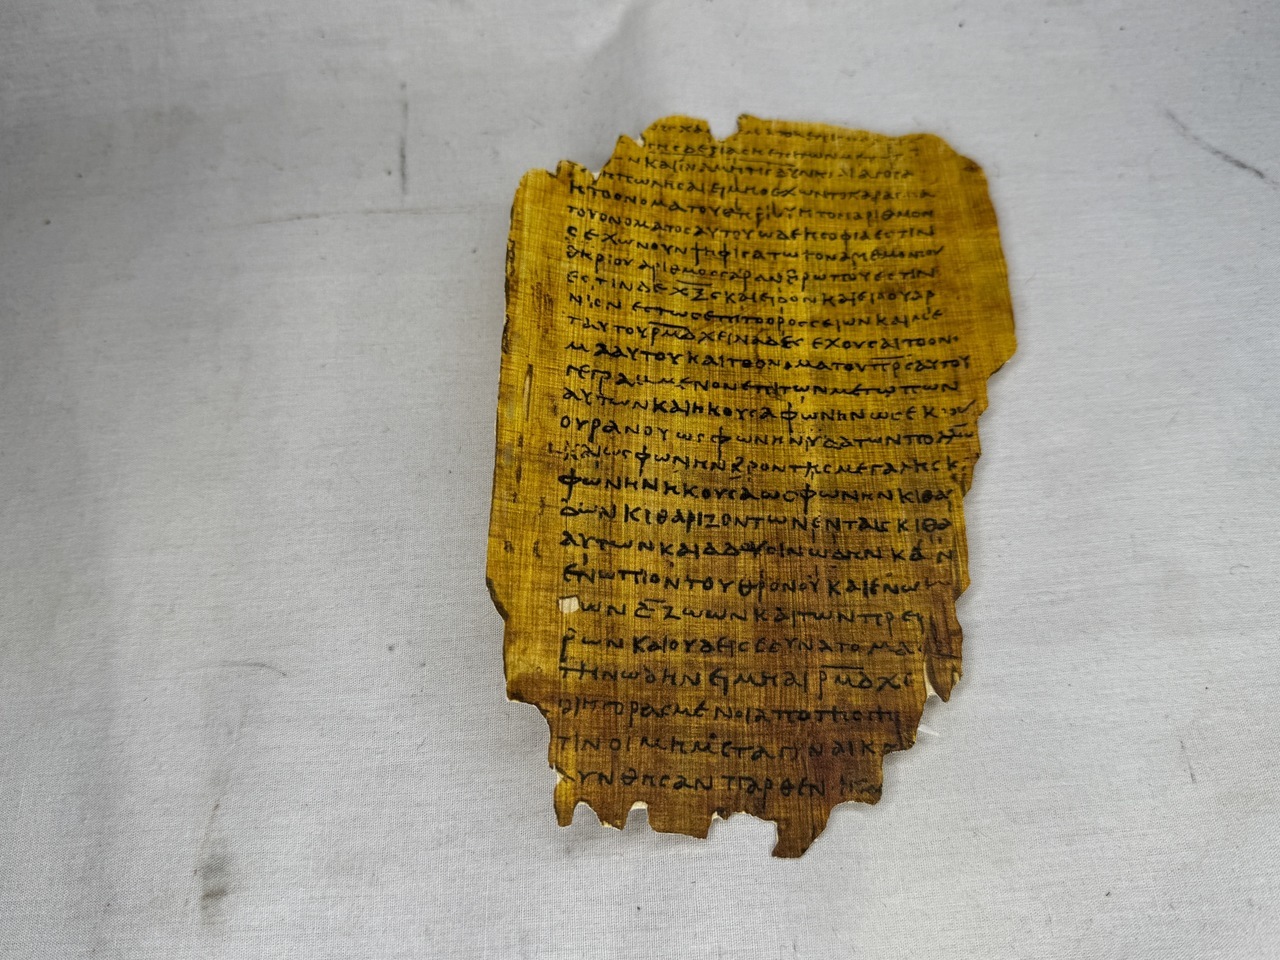 ΔΕΞΙΑϹΗΕΠΙΤΩΝ
ΝΚΑΙΙΝΑΜΗΤΙϹΔΥΝΗΤΑΙΑΓΟΡΑ
ΗΠΩΛΗϹΑΙΕΙΜΗΟΕΧΩΝΤΟΧΑΡΑΓΜΑ
ΗΤΟΟΝΟΜΑΤΟΥΘΗΡΙΟΥΗΤΟΝΑΡΙΘΜΟΝ
ΤΟΥΟΝΟΜΑΤΟϹΑΥΤΟΥΩΔΕΗϹΟΦΙΑΕϹΤΙΝ
ϹΕΧΩΝΟΥΝΨΗΦΙϹΑΤΩΤΟΝΑΡΙΘΜΟΝΤΟΥ
ΘΗΡΙΟΥΑΡΙΘΜΟϹΓΑΡΑΝΘΡΩΠΟΥΕϹΤΙΝ
ΕϹΤΙΝΔΕΧΞϹΚΑΙΕΙΔΟΝΚΑΙΕΙΔΟΥΑΡ
ΝΙΟΝΕϹΤΩϹΕΠΙΤΟΟΡΟϹϹΕΙΩΝΚΑΙΜΕ
ΤΑΥΤΟΥΡΜΔΧΕΙΛΙΑΔΕϹΕΧΟΥϹΑΙΤΟΟΝΟ
ΜΑΑΥΤΟΥΚΑΙΤΟΟΝΟΜΑΤΟΥΠΡϹΑΥΤΟΥ
ΓΕΓΡΑΜΜΕΝΟΝΕΠΙΤΩΝΜΕΤΩΠΩΝ
ΑΥΤΩΝΚΑΙΗΚΟΥϹΑΦΩΝΗΝΩϹΕΚΤΟΥ
ΟΥΡΑΝΟΥΩϹΦΩΝΗΝΥΔΑΤΩΝΠΟΛΛΩΝ
ΚΑΙΩϹΦΩΝΗΝΒΡΟΝΤΗϹΜΕΓΑΛΗϹΚ
ΦΩΝΗΝΗΚΟΥϹΑΩϹΦΩΝΗΝΚΙΘΑΡ
ΔΩΝΚΙΘΑΡΙΖΟΝΤΩΝΕΝΤΑΙϹΚΙΘΑ
ΑΥΤΩΝΚΑΙΑΔΟΥϹΙΝΩΔΗΝΚΑΙΝ
ΕΝΩΠΙΟΝΤΟΥΘΡΟΝΟΥΚΑΙΕΝΩ
ΤΩΝΔΖΩΩΝΚΑΙΤΩΝΠΡΕϹ
ΡΩΝΚΑΙΟΥΔΕΙϹΕΔΥΝΑΤΟΜΑ
ΤΗΝΩΔΗΝΕΙΜΗΑΙΡΜΔΧΕ
ΟΙΗΓΟΡΑϹΜΕΝΟΙΑΠΟΤΗϹΓΗϹ
ΤΙΝΟΙΜΗΜΕΤΑΓΥΝΑΙΚ
ΛΥΝΘΗϹΑΝΠΑΡΘΕΝ